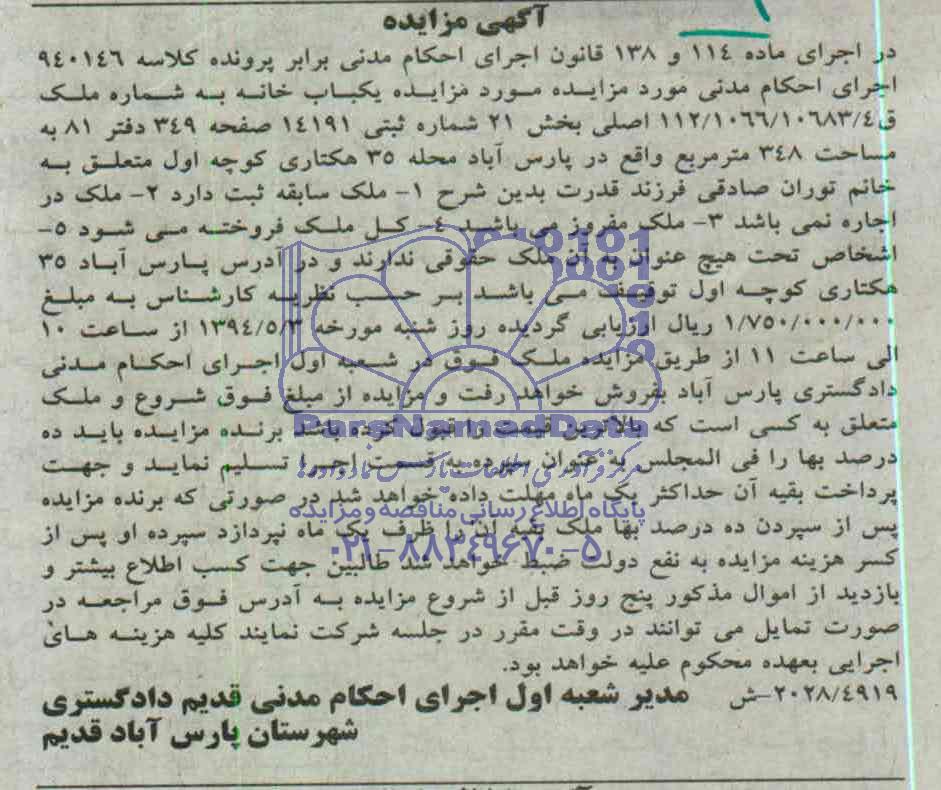 آگهی مزایده
در اجرای ماده ۱۱٤ و ۱۳۸ قانون اجرای احکام مدنی برابر پرونده کلاسه ۹٤۰۱٤٦
اجرای احکام مدنی مورد مزایده مورد مزایده یکباب خانه به شماره ملک
ق۱۱۲/۱۰٦٦/۱۰٦۸۳/٤ اصلی بخش ۲۱ شماره ثبتی ۱٤۱۹۱ صفحه ۳٤۹ دفتر ۸۱ به
مساحت ۳٤۸ مترمربع واقع در پارس آباد محله ۳۵ هکتاری کوچه اول متعلق به
خانم توران صادقی فرزند قدرت بدین شرح ۱- ملک سابقه ثبت دارد ۲- ملک در
اجاره نمی باشد ۳- ملک مفروز می باشد ٤- کل ملک فروخته می شود ۵-
اشخاص تحت هیچ عنوان به آن ملک حقوقی ندارند و در آدرس پارس آباد ۳۵
هکتاری کوچه اول توقیف می باشد بر حسب نظریه کارشناس به مبلغ
۱/۷۵۰/۰۰۰/۰۰۰ ریال ارزیابی گردیده روز شنبه مورخه ۱۳۹٤/۵/۳ از ساعت ۱۰
الی ساعت ۱۱ از طریق مزایده ملک فوق در شعبه اول اجرای احکام مدنی
دادگستری پارس آباد بفروش خواهد رفت و مزایده از مبلغ فوق شروع و ملک
متعلق به کسی است که بالاترین قیمت را قبول کرده باشد برنده مزایده باید ده
درصد بها را فی المجلس به عنوان سپرده به قسمت اجرا تسلیم نماید و جهت
پرداخت بقیه آن حداکثر یک ماه مهلت داده خواهد شد در صورتی که برنده مزایده
پس از سپردن ده درصد بها ملک بقیه آن را ظرف یک ماه نپردازد سپرده او پس از
کسر هزینه مزایده به نفع دولت ضبط خواهد شد طالبین جهت کسب اطلاع بیشتر و
بازدید از اموال مذکور پنج روز قبل از شروع مزایده به آدرس فوق مراجعه در
صورت تمایل می توانند در وقت مقرر در جلسه شرکت نمایند کلیه هزینه های
اجرایی بعهده محکوم علیه خواهد بود.
۲۰۲۸/٤۹۱۹-ش مدیر شعبه اول اجرای احکام مدنی قدیم دادگستری
شهرستان پارس آباد قدیم
ParsNamadData
مرکز فرآوری اطلاعات پارس نماد داده ها
پایگاه اطلاع رسانی مناقصه و مزایده
۰۲۱-۸۸۳۴۹۶۷۰-۵